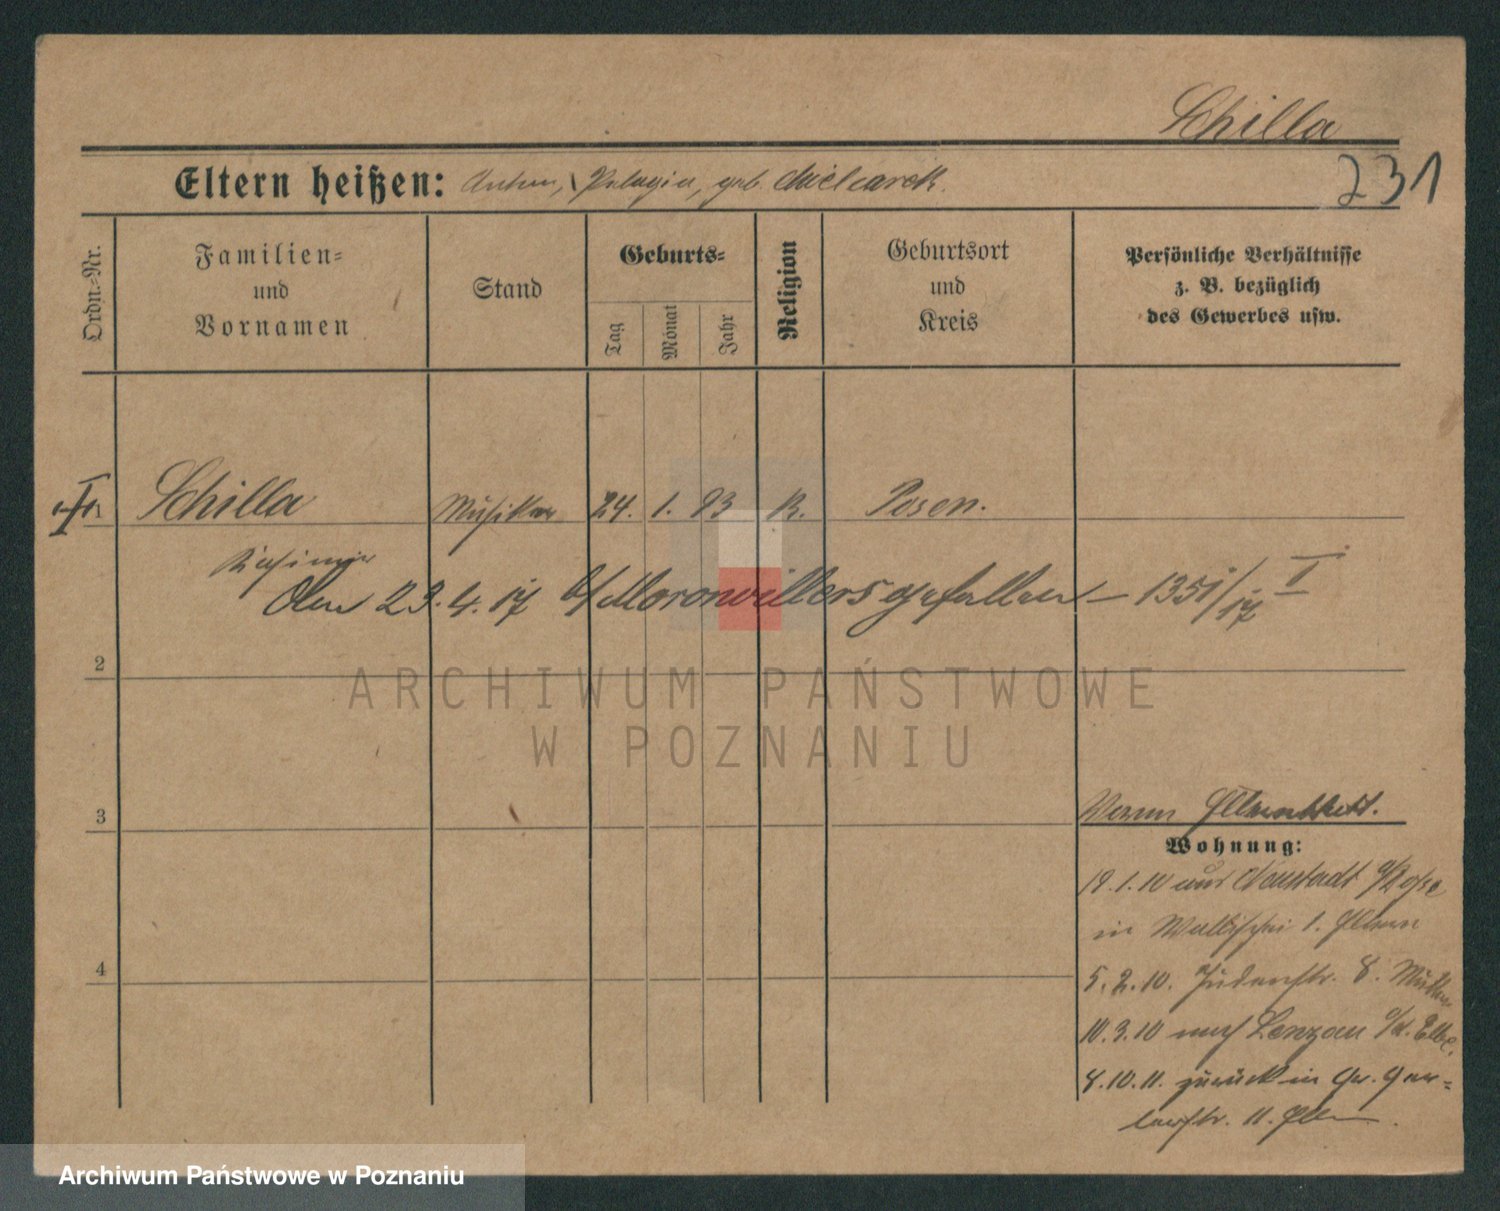 Schilla
231
Eltern heißen: Anton, Pelagia, geb. Michearek.
Ordn.-Nr.
Familien-
und
Vornamen
Stand
Geburts-
Tag
Monat
Jahr
Religion
Geburtsort
und
Kreis
Persönliche Verhältnisse
z. B. bezüglich
des Gewerbes usw.
1 Schilla Musiker 24. 1. 93 K. Posen.
Kasimir
Den 23. 4. 17 b/ Moronvillers gefallen – 1351/17 I
2
ARCHIWUM PAŃSTWOWE
W POZNANIU
3
4
Wohnung:
19.1.10 aus Neustadt
in Wallischei 1. Eltern
5.2.10. Judenstr. 8. Mutter
10.3.10 nach Lenzen a/d. Elbe.
8.10.11. zurück in Gr. Ger=
berstr. 11. Eltern
Archiwum Państwowe w Poznaniu